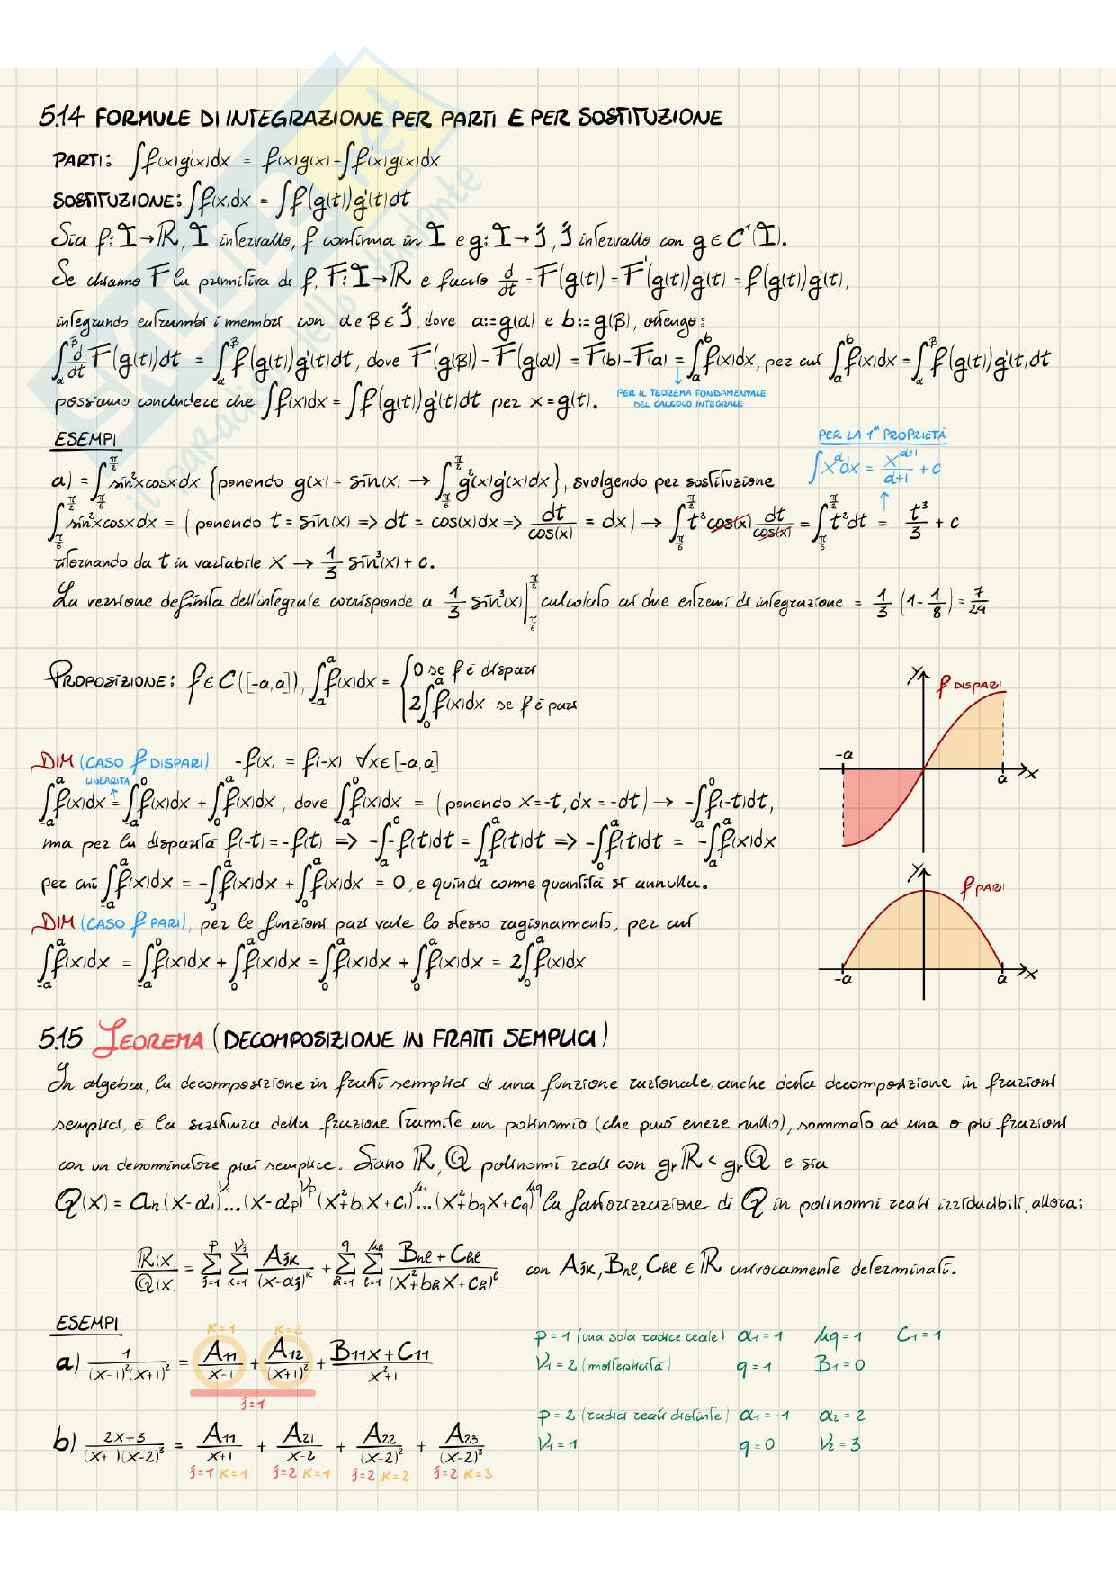 5.14 FORMULE DI INTEGRAZIONE PER PARTI E PER SOSTITUZIONE
PARTI: ∫f(x)g'(x)dx = f(x)g(x) - ∫f(x)g(x)dx
SOSTITUZIONE: ∫f(x)dx = ∫f(g(t))g'(t)dt
Sia f: I→R, I intervallo, f continua in I e g: I→J, J intervallo con g∈C¹(I).
Se chiamo F la primitiva di f, F: I→R e faccio d/dt F(g(t)) = F'(g(t))g(t) = f(g(t))g(t),
integrando entrambi i membri con α e β ∈ J, dove a:=g(α) e b:=g(β), ottengo:
∫_α^β d/dt F(g(t))dt = ∫_α^β f(g(t))g'(t)dt, dove F(g(β)) - F(g(α)) = F(b) - F(a) = ∫_a^b f(x)dx, per cui ∫_a^b f(x)dx = ∫_α^β f(g(t))g'(t)dt
PER IL TEOREMA FONDAMENTALE DEL CALCOLO INTEGRALE
possiamo concludere che ∫f(x)dx = ∫f(g(t))g'(t)dt per x=g(t).
ESEMPI
PER LA 1ª PROPRIETÀ
∫x^α dx = x^(α+1)/(α+1) + c
a) = ∫_(π/6)^(π/2) sin²x cosx dx {ponendo g(x) = sin(x) → ∫_(π/6)^(π/2) g²(x)g'(x)dx}, svolgendo per sostituzione
∫_(π/6)^(π/2) sin²x cosx dx = (ponendo t = sin(x) => dt = cos(x)dx => dt/cos(x) = dx) → ∫_(π/6)^(π/2) t² cos(x) dt/cos(x) = ∫_(π/6)^(π/2) t² dt = t³/3 + c
ritornando da t in variabile x → 1/3 sin³(x) + c.
La versione definita dell'integrale corrisponde a 1/3 sin³(x)|_(π/6)^(π/2) calcolato ai due estremi di integrazione = 1/3 (1 - 1/8) = 7/24
PROPOSIZIONE: f∈C([-a,a]), ∫_(-a)^a f(x)dx = { 0 se f è dispari
2∫_0^a f(x)dx se f è pari
y f DISPARI
-a a x
DIM (CASO f DISPARI) -f(x) = f(-x) ∀x∈[-a,a]
LINEARITÀ
∫_(-a)^a f(x)dx = ∫_(-a)^0 f(x)dx + ∫_0^a f(x)dx, dove ∫_(-a)^0 f(x)dx = (ponendo x=-t, dx=-dt) → -∫_a^0 f(-t)dt,
ma per la disparità f(-t) = -f(t) => -∫_a^0 -f(t)dt = ∫_a^0 f(t)dt => -∫_0^a f(t)dt = -∫_a^a f(x)dx
per cui ∫_(-a)^a f(x)dx = -∫_0^a f(x)dx + ∫_0^a f(x)dx = 0, e quindi come quantità si annulla.
y f PARI
-a a x
DIM (CASO f PARI), per le funzioni pari vale lo stesso ragionamento, per cui
∫_(-a)^a f(x)dx = ∫_(-a)^0 f(x)dx + ∫_0^a f(x)dx = ∫_0^a f(x)dx + ∫_0^a f(x)dx = 2∫_0^a f(x)dx
5.15 TEOREMA (DECOMPOSIZIONE IN FRATTI SEMPLICI)
In algebra, la decomposizione in fratti semplici di una funzione razionale, anche detta decomposizione in frazioni
semplici, è la scrittura della frazione tramite un polinomio (che può essere nullo), sommato ad una o più frazioni
con un denominatore più semplice. Siano R, Q polinomi reali con gr R < gr Q e sia
Q(x) = a_n (x-α₁)^ν₁...(x-α_p)^ν_p (x²+b₁x+c₁)^μ₁...(x²+b_q x+c_q)^μ_q la fattorizzazione di Q in polinomi reali irriducibili, allora:
R(x)/Q(x) = Σ_(j=1)^p Σ_(k=1)^(ν_j) A_jk/(x-α_j)^k + Σ_(h=1)^q Σ_(l=1)^(μ_h) B_hl + C_hl/(x²+b_h x+c_h)^l con A_jk, B_hl, C_hl ∈ R univocamente determinati.
ESEMPI
K=1 K=2
a) 1/((x-1)²(x+1)²) = A₁₁/(x-1) + A₁₂/(x+1)² + (B₁₁x+C₁₁)/(x²+1)
j=1
p=1 (una sola radice reale) α₁=1 μq=1 C₁=1
ν₁=2 (molteplicità) q=1 B₁=0
b) (2x-5)/((x+1)(x-2)³) = A₁₁/(x+1) + A₂₁/(x-2) + A₂₂/(x-2)² + A₂₃/(x-2)³
j=1 K=1 j=2 K=1 j=2 K=2 j=2 K=3
p=2 (radici reali distinte) α₁=-1 α₂=2
ν₁=1 q=0 ν₂=3